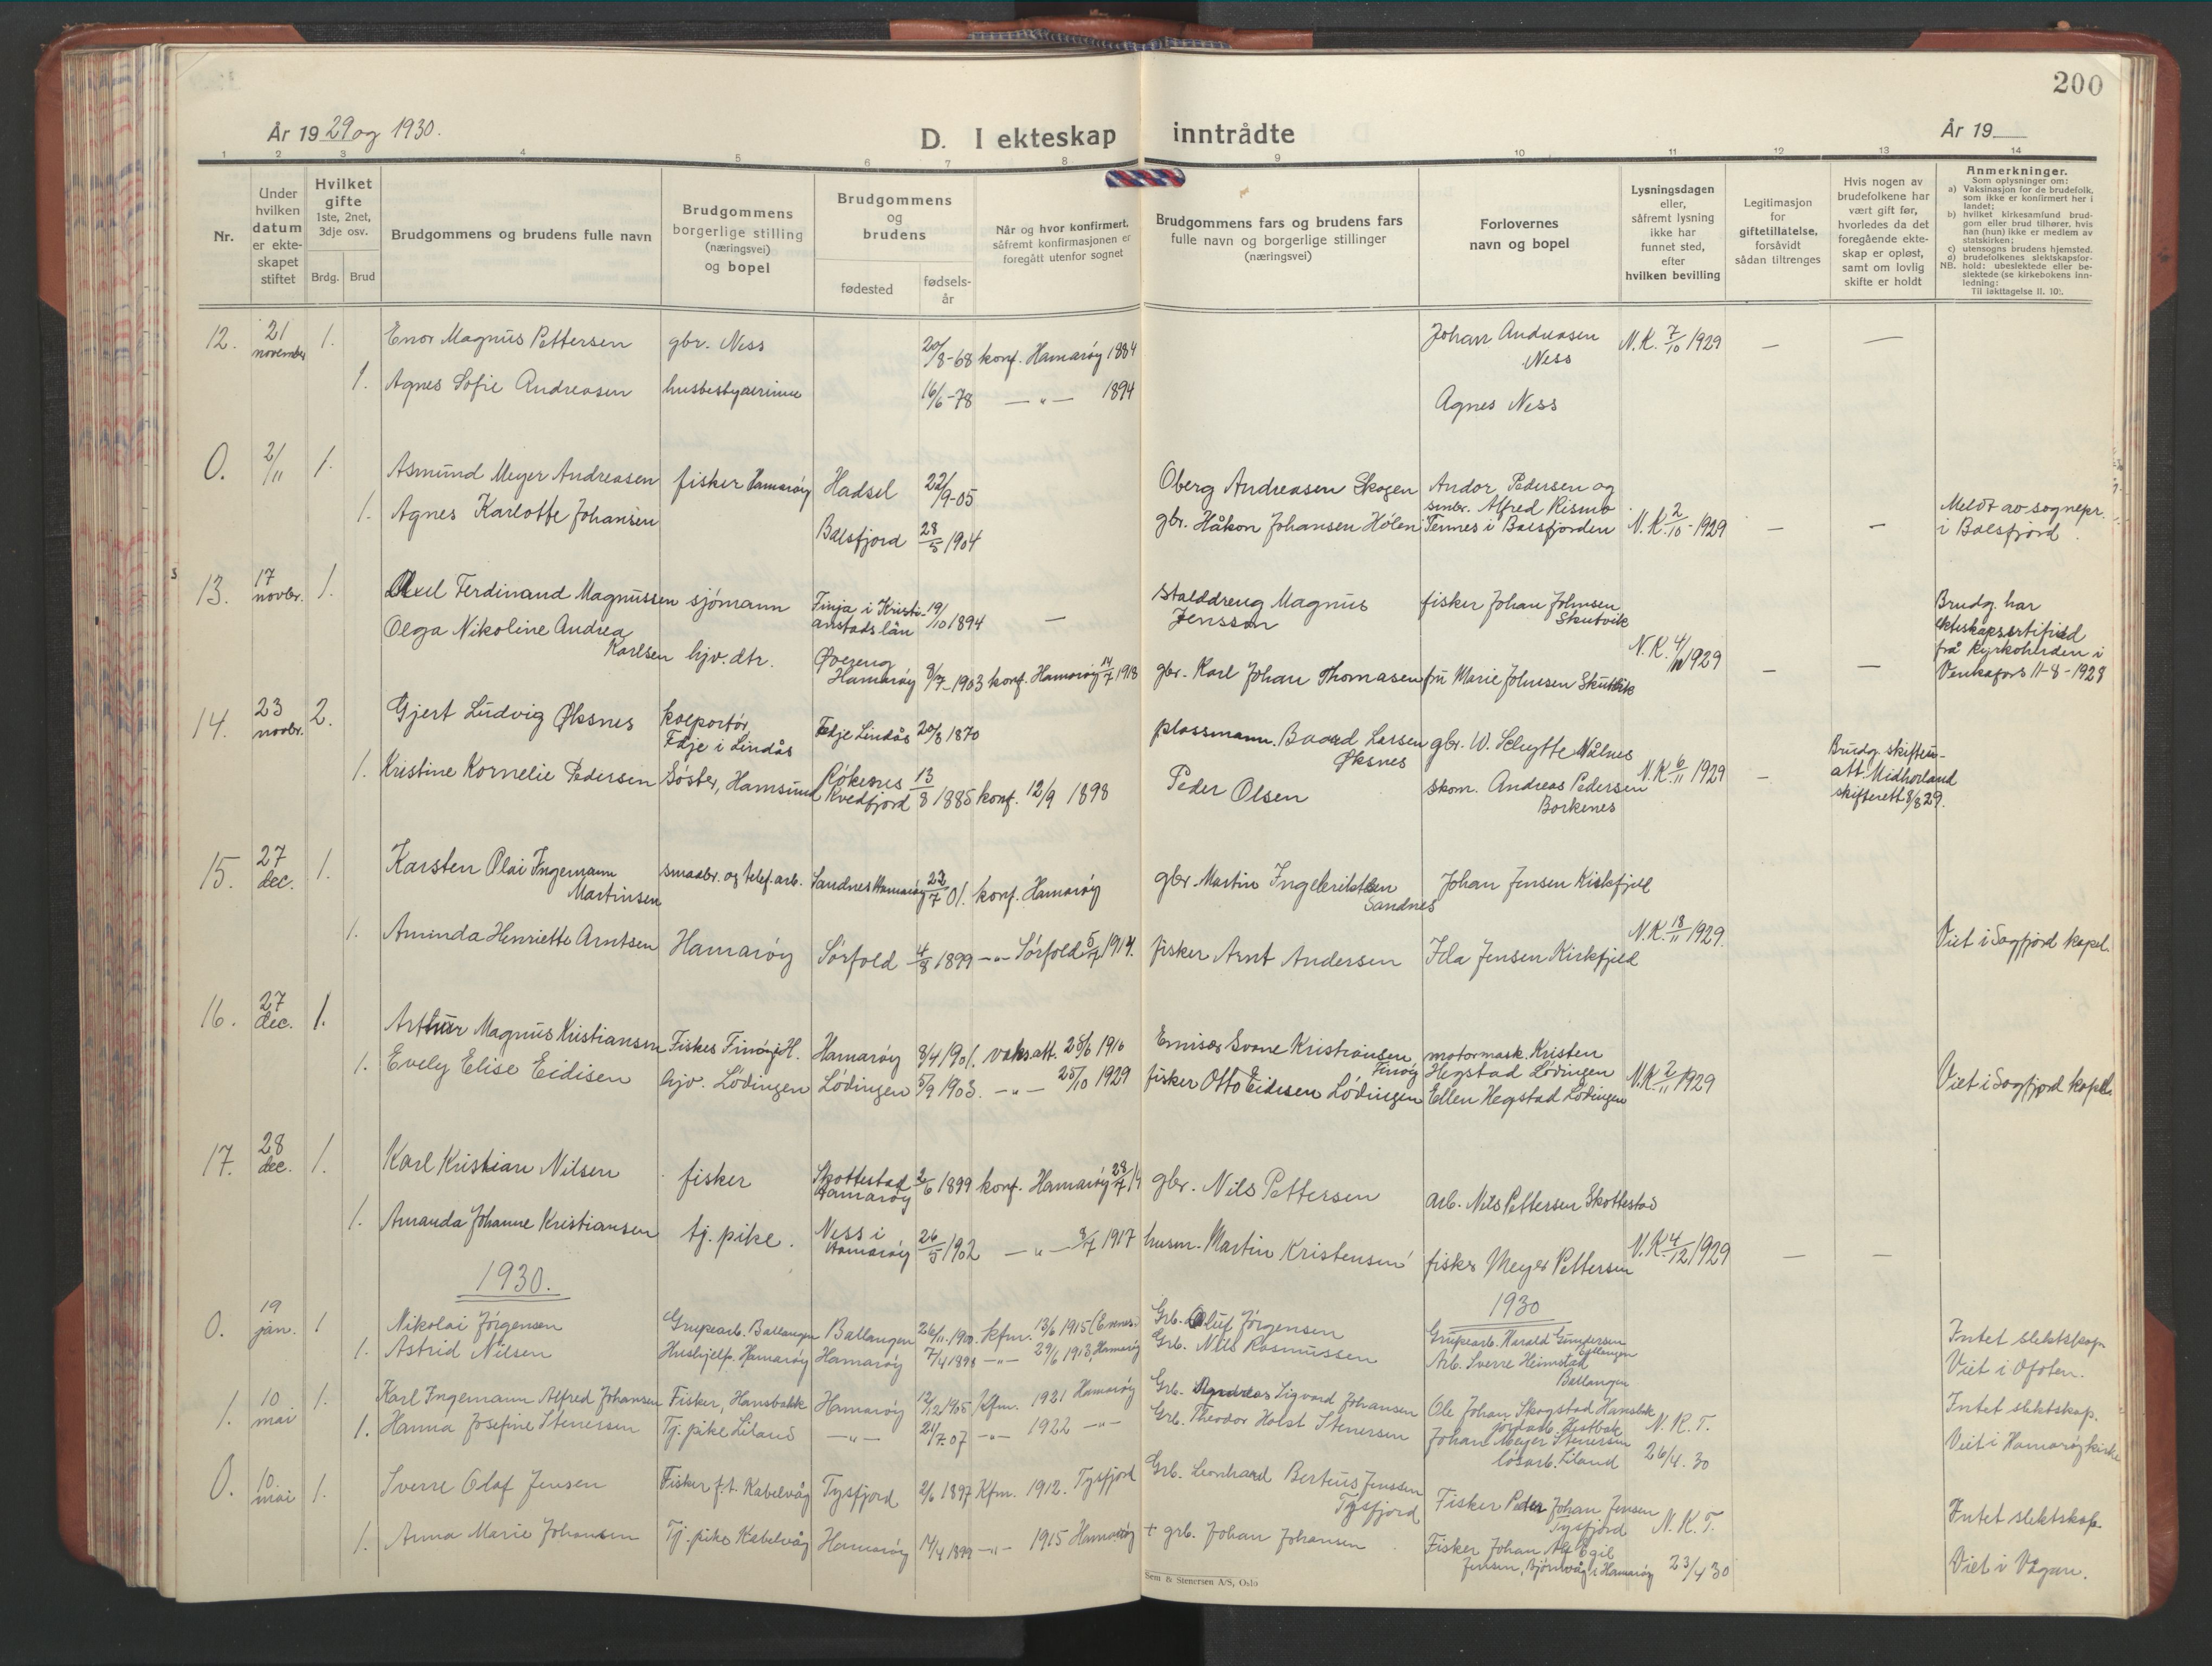 200
År 19 29 og 1930.
D. I ekteskap inntrådte
År 19
1 2 3 4 5 6 7 8 9 10 11 12 13 14
Nr.
Under hvilken datum er ekte- skapet stiftet
Hvilket gifte 1ste, 2net, 3dje osv.
Brdg. Brud
Brudgommens og brudens fulle navn
Brudgommens borgerlige stilling (næringsvei) og bopel
Brudgommens og brudens
fødested
fødsels- år
Når og hvor konfirmert, såfremt konfirmasjonen er foregått utenfor sognet
Brudgommens fars og brudens fars fulle navn og borgerlige stillinger (næringsvei)
Forlovernes navn og bopel
Lysningsdagen eller, såfremt lysning ikke har funnet sted, efter hvilken bevilling
Legitimasjon for giftetillatelse, forsåvidt sådan tiltrenges
Hvis nogen av brudefolkene har vært gift før, hvorledes da det foregående ekte- skap er opløst, samt om lovlig skifte er holdt
Anmerkninger.
Som oplysninger om:
a) Vaksinasjon for de brudefolk, som ikke er konfirmert her i landet;
b) hvilket kirkesamfund brud- gom eller brud tilhører, hvis han (hun) ikke er medlem av statskirken;
c) utensogns brudens hjemsted.
d) brudefolkenes slektskapsfor- hold: ubeslektede eller be- slektede (se kirkebokens inn- ledning:
NB.
Til iakttagelse II. 10).
12. 21 november 1. Enor Magnus Pettersen gbr. Ness 20/8-68 konf. Hamarøy 1884 Johan Andreasen Ness N.K. 7/10 1929 — —
1. Agnes Sofie Andreasen husbestyrerinne 16/6-78 — " — 1894 Agnes Ness
0. 2/11 1. Asmund Meyer Andreasen fisker Hamarøy Hadsel 22/9-05 Oberg Andreasen Skogen Andor Pedersen og
1. Agnes Karlotte Johansen Balsfjord 28/5 1904 gbr. Håkon Johansen Hølen smbr. Alfred Rismo Tennes i Balsfjorden N.K. 2/10-1929 — — Meldt av sognepr. i Balsfjord.
13. 17 novbr. 1. Axel Ferdinand Magnussen sjömann Finja i Kristi- anstads län 19/10 1894 — stalddreng Magnus Jensson fisker Johan Johnsen Skutvik
Olga Nikoline Andrea Karlsen hjv. dtr. Øvereng Hamarøy 9/7-1903 konf. Hamarøy 14/7 1918 gbr. Karl Johan Thomasen fru Marie Johnsen Skutvik N.K. 4/11 1929 — — Brudg. har ekteskapssertifikat frå kyrkoherden i 11-8-1928
14. 23 novbr. 2. Gjert Ludvig Øksnes kolportör Fedje i Lindås Fedje Lindås 20/8 1870 plassmann. Baard Larsen Øksnes gbr. W. Schytte Målnes
1. Kristine Kornelie Pedersen Søster, Hamsund Rökenes Kvedfjord 13/8 1885 konf. 12/9 1898 Peder Olsen skom. Andreas Pedersen Borkenes N.K. 6/11 1929 — Brudg. skifteu- att. Midhorland skifterett 8/8 29.
15. 27 dec. 1. Karsten Olai Ingemann Martinsen smaabr. og telef.arb. Sandnes Hamarøy 22/7 01. konf. Hamarøy gbr. Martin Sandnes Johan Jensen Kirkfjell
1. Aminda Henriette Arntsen Hamarøy Sørfold 4/8 1899 — " — Sørfold 5/7 1914. fisker Arnt Andersen Ida Jensen Kirkfjeld N.K. 18/11 1929. Viet i Sagfjord kapel.
16. 27 dec. 1. Arthur Magnus Kristiansen Fisker Finøy i H. Hamarøy 8/4 1901. vaks.att. 25/6 1910 Emisær Svane Kristiansen Finøy motormask. Kristen Hegstad Lödingen
1. Evely Elise Eidisen hjv. Lödingen Lödingen 5/9 1903. — " — 25/10 1929 fisker Otto Eidesen Lödingen Ellen Hegstad Lödingen N.K. 2/11 1929 Viet i Sagfjord kapel.
17. 28 dec. 1. Karl Kristian Nilsen fisker Skottestad Hamarøy 2/6 1899 konf. Hamarøy 28/7 14 gbr. Nils Pettersen arb. Nils Pettersen Skottestad
1. Amanda Johanne Kristiansen tj. pike. Ness i Hamarøy 26/5 1902 — " — 8/7 1917 husm. Martin Kristensen fisker Meyer Pettersen N.K. 4/12 1929 — —
1930. 1930
0. 19 jan. 1 Nikolai Jörgensen Grupearb. Ballangen Ballangen 26/11.1900. kfm. 13/6 1915 (Evenes) Grb. Oluf Jörgensen Grupearb. Harald Gundersen Ballangen
1. Astrid Nilsen Hushjelp. Hamarøy Hamarøy 7/4 1898 — " — 29/6 1913, Hamarøy Grb. Nils Rasmussen Arb. Sverre Heimstad Ballangen Intet slektskap. Viet i Ofoten.
1. 10 mai 1. Karl Ingemann Alfred Johansen Fisker, Hansbakk Hamarøy 12/12 1905 Kfm. 1921 Hamarøy Grb. Andreas Sigvard Johansen Ole Johan Skogstad Hansbk
1. Hanna Josefine Stenersen Tj. pike Liland — " — 21/7.07 — " — 1922 — " — Grb. Theodor Holst Stenersen Johan Meyer Stenersen lösarb. Liland N.K.T. 26/4.30 Intet slektskap. Viet i Hamarøy kirke
0. 10. mai 1. Sverre Olaf Jensen Fisker f.t. Kabelvåg Tysfjord 2/6 1897 Kfm. 1912. Tysfjord Grb. Leonhaard Berteus Jenssen Tysfjord Fisker Peder Johan Jensen Tysfjord N.K.T.
1. Anna Marie Johansen Tj. pike Kabelvåg Hamarøy 14/4 1899 — " — 1915 Hamarøy + grb. Johan Johansen Fisker Johan Alf Egil Jensen, i Hamarøy 23/4 30 Intet slektskap. Viet i Vågan.
Sem & Stenersen A/S, Oslo